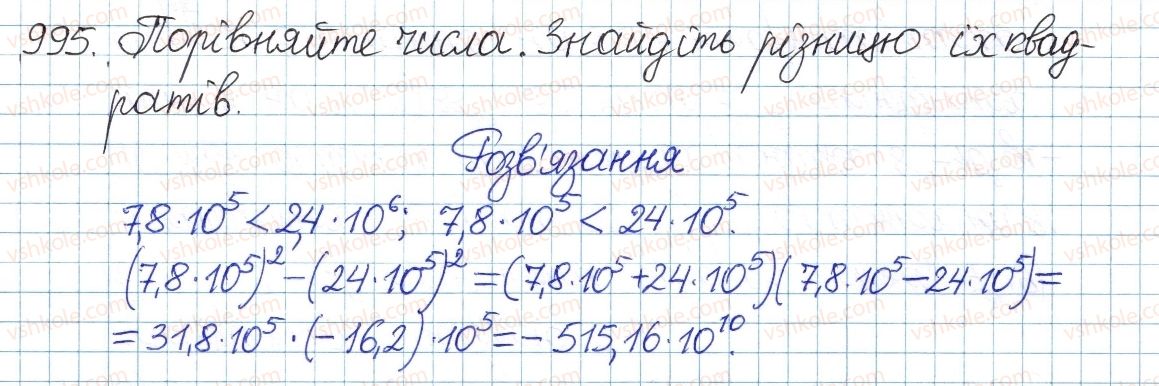 995. Порівняйте числа. Знайдіть різницю їх квад-
ратів.
Розв'язання
7,8·10⁵ < 2,4·10⁶; 7,8·10⁵ < 24·10⁵.
(7,8·10⁵)² − (24·10⁵)² = (7,8·10⁵ + 24·10⁵)(7,8·10⁵ − 24·10⁵) =
= 31,8·10⁵·(−16,2)·10⁵ = − 515,16·10¹⁰.